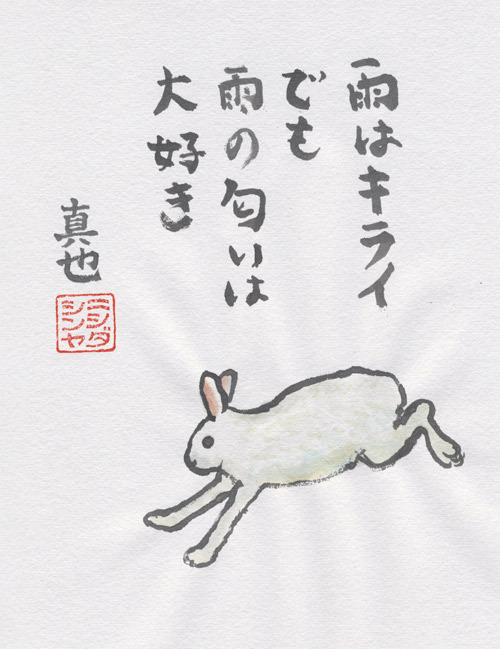 雨はキライ
でも
雨の匂いは
大好き
真也
ニシダ
シンヤ